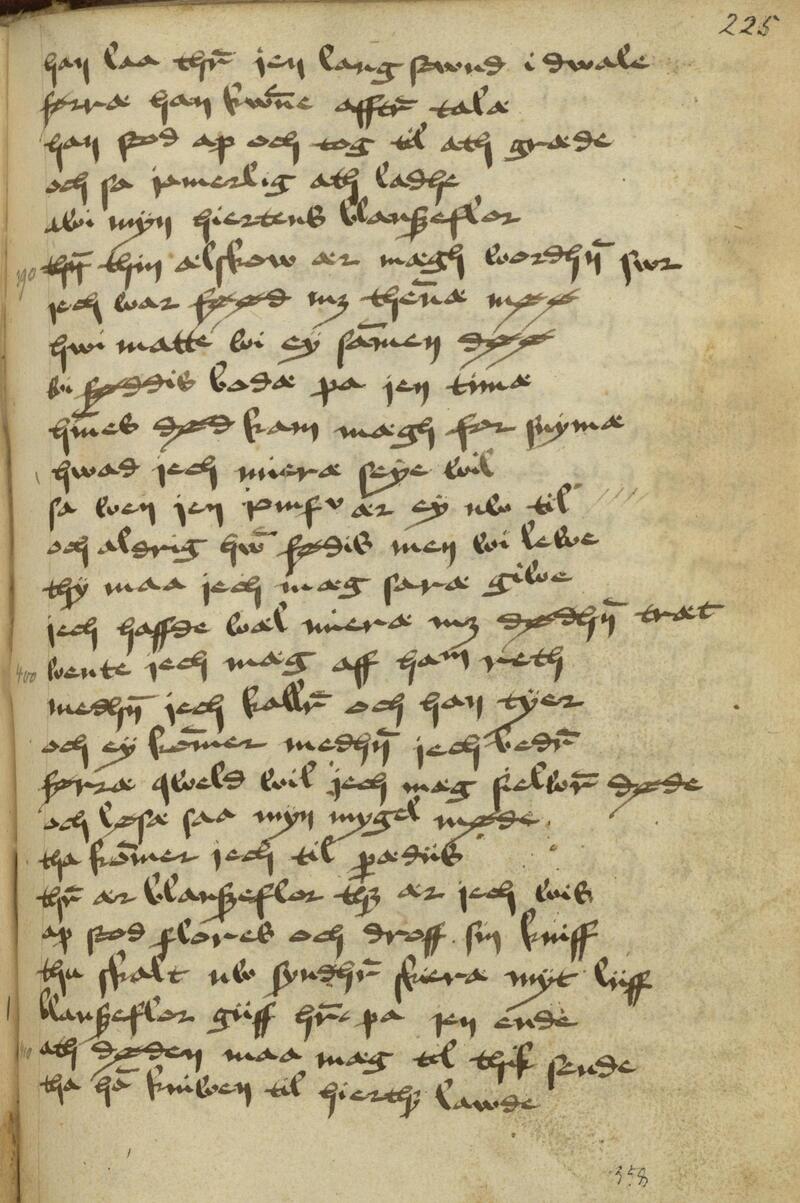 225
han laa thr̄ jen lang stwnd i dwale
førræ han kwn̄e afftr̄ talæ
han stod ap och tog til ath græde
och sa jæmerlig ath ladhe
awi myn hiertens blanszeflor
390 thn̄ thin ælskow ær mægh wordhn̄ swr
jech war føød mz then̄æ møø
hwi matte wi ey sam̄en døø
wi føddis bodæ pa jen timæ
hn̄es død kam mægh for snymæ
hwad jech mieræ seye wil
sa wen jen jomfrv ær ey nw til
och aldrig hw̄ fødis men wi lewe
thy maa jech mæg saræ giwe
jech haffde wæl mieræ mz dødhn̄ træt
400 wente jech mæg aff ham reth
medhn̄ jech kallr̄ och han tyer
och ey kom̄er medhn̄ jech bedr̄
førræ qweld wil jech mæg sielwr̄ døde
och løsæ saa myn mygel møde
tha kom̄er jech til pædiis
thr̄ ær blanszeflor thz ær jech wis
ap stod flores och droff sin kniff
thu skalt nw syndhr̄ skieræ myt liiff
blanszeflor giiff hr̄ pa jen ende
ath døden maa mæg til thik sende
tha hā kniwen til hierthz lawde
358